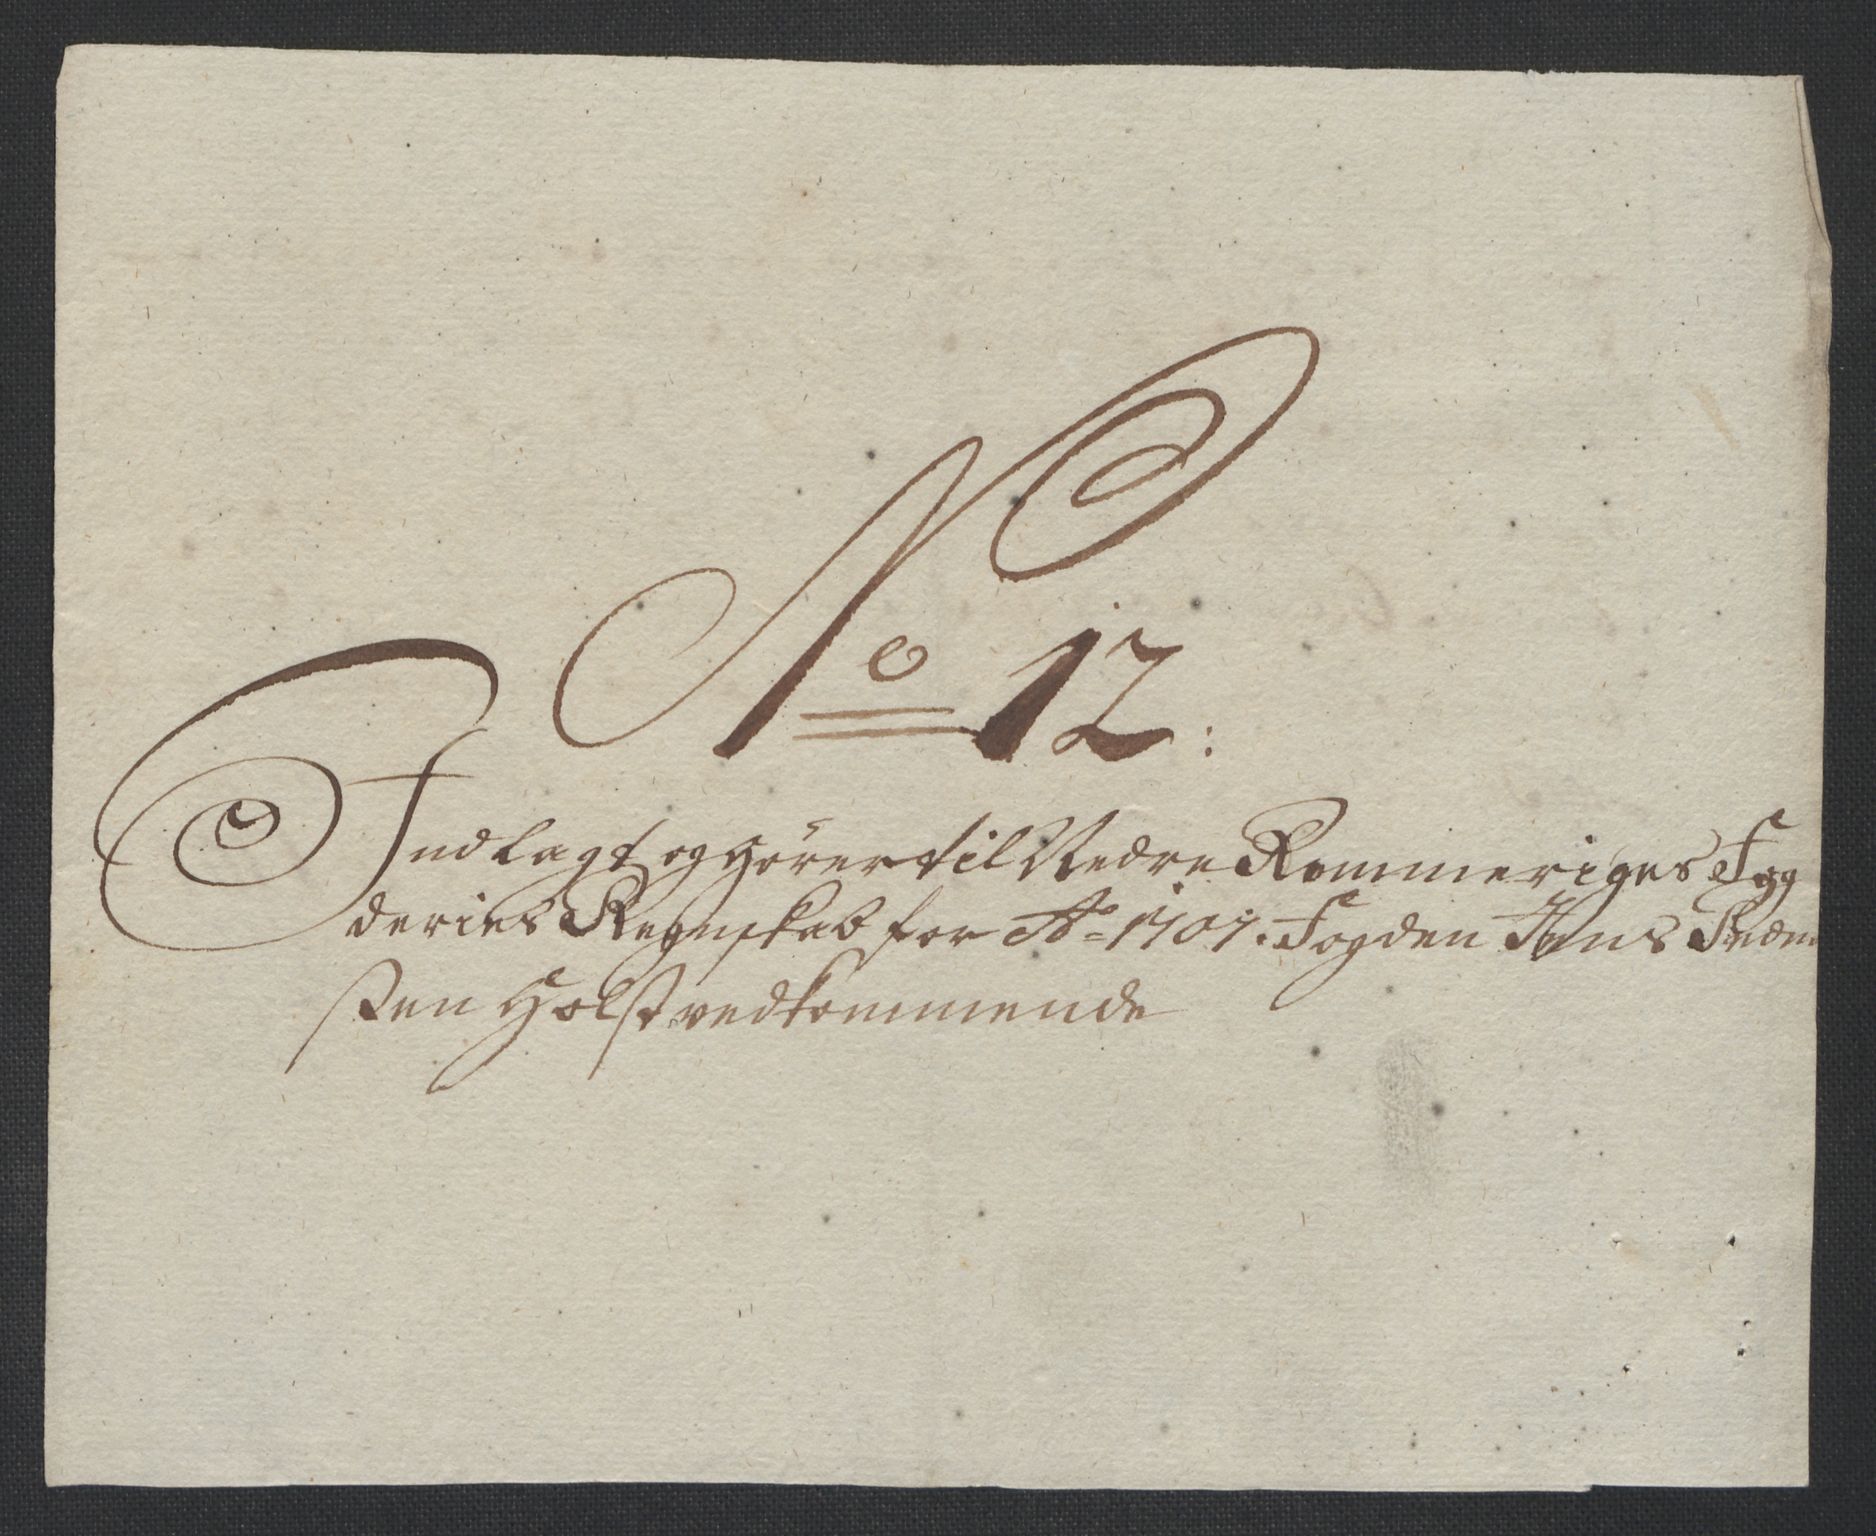 No 12:
Indlagt og hörer til Nedre Rommeriges Fog
deries Regnskab for Ao 1707. Fogden Hans Peder
ßen Holst vedkommende